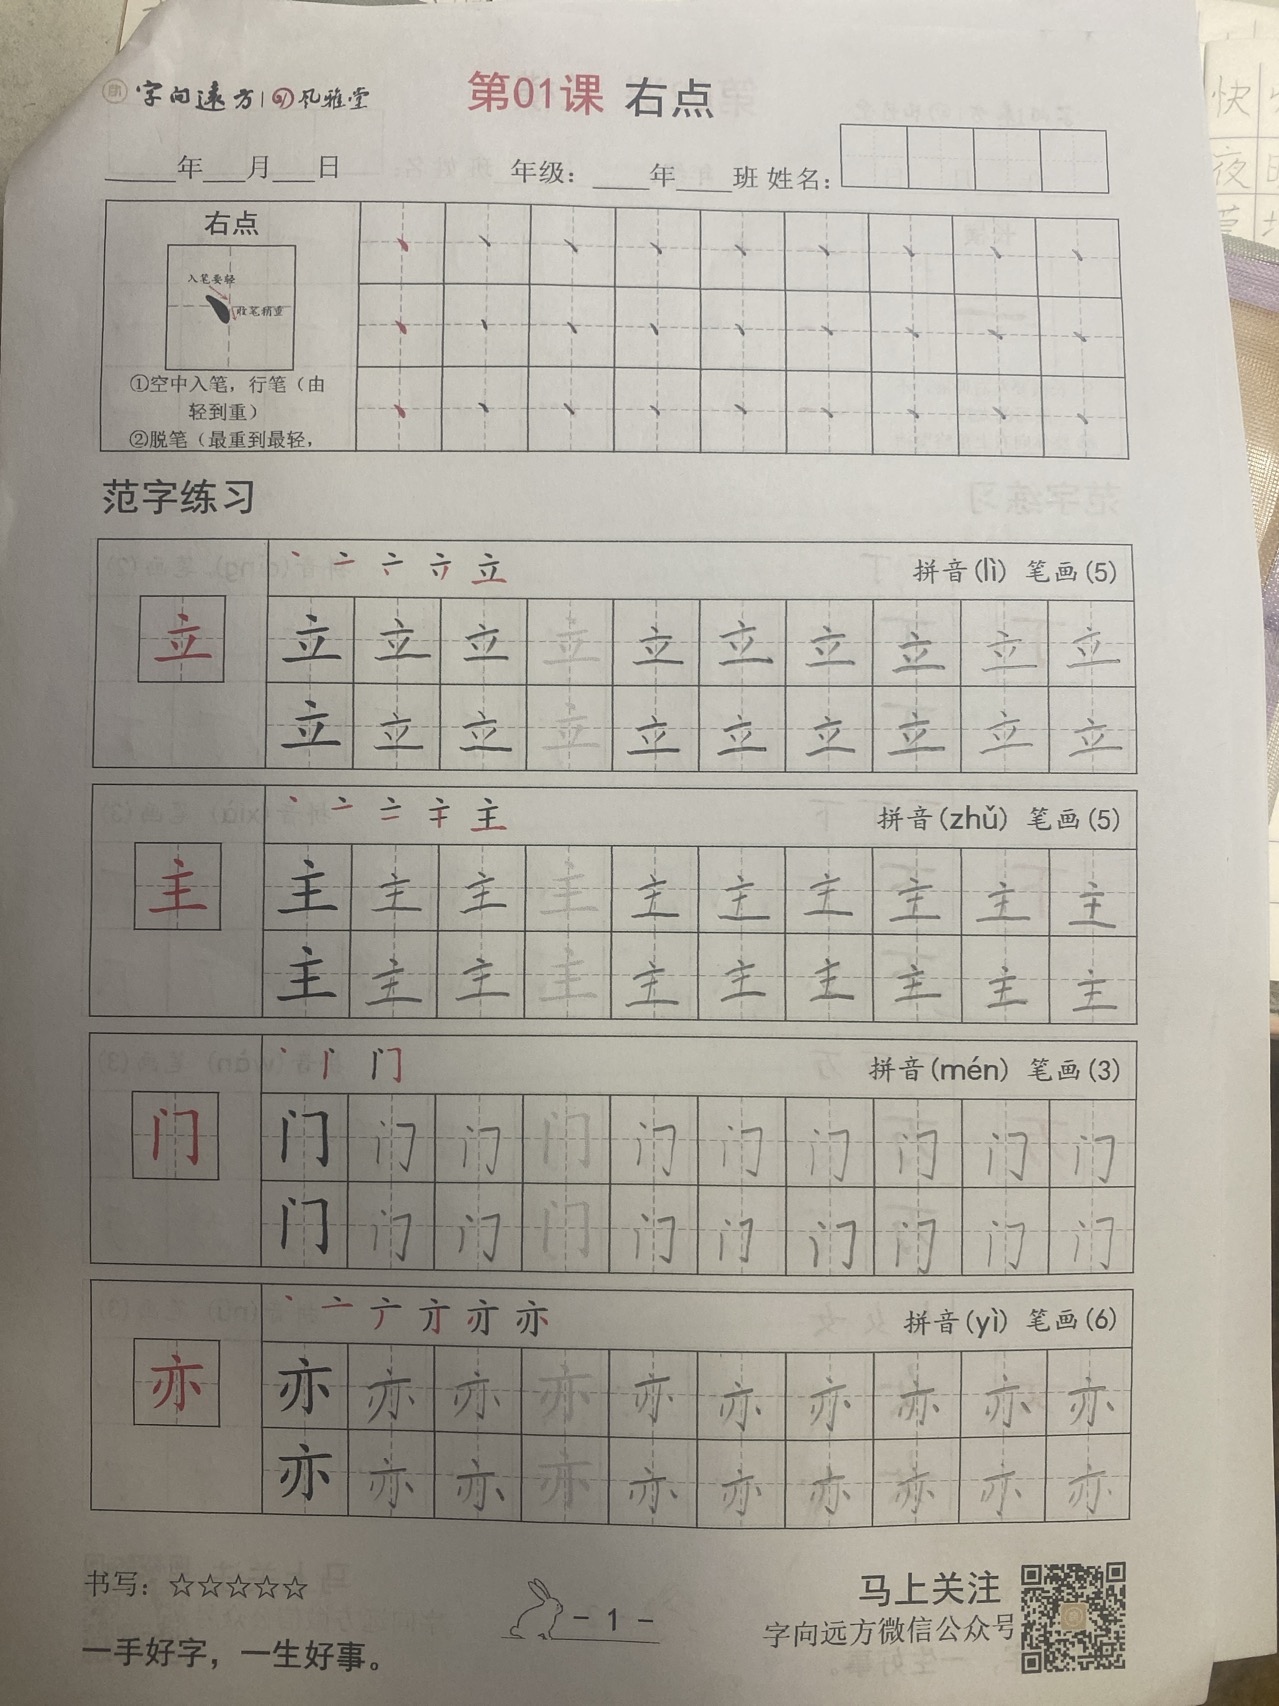 字向远方 风雅堂
第01课 右点
____年___月___日 年级：____年____班 姓名：
右点
入笔要轻
收笔稍重
①空中入笔，行笔（由
轻到重）
②脱笔（最重到最轻，
范字练习
拼音(lì) 笔画(5)
立
立 立 立 立 立 立 立 立 立 立
立 立 立 立 立 立 立 立 立 立
主 拼音(zhǔ) 笔画(5)
主
主 主 主 主 主 主 主 主 主 主
主 主 主 主 主 主 主 主 主 主
门 拼音(mén) 笔画(3)
门
门 门 门 门 门 门 门 门 门 门
门 门 门 门 门 门 门 门 门 门
亦 拼音(yì) 笔画(6)
亦
亦 亦 亦 亦 亦 亦 亦 亦 亦 亦
亦 亦 亦 亦 亦 亦 亦 亦 亦 亦
书写：☆☆☆☆☆
一手好字，一生好事。
- 1 -
马上关注
字向远方微信公众号
快
夜